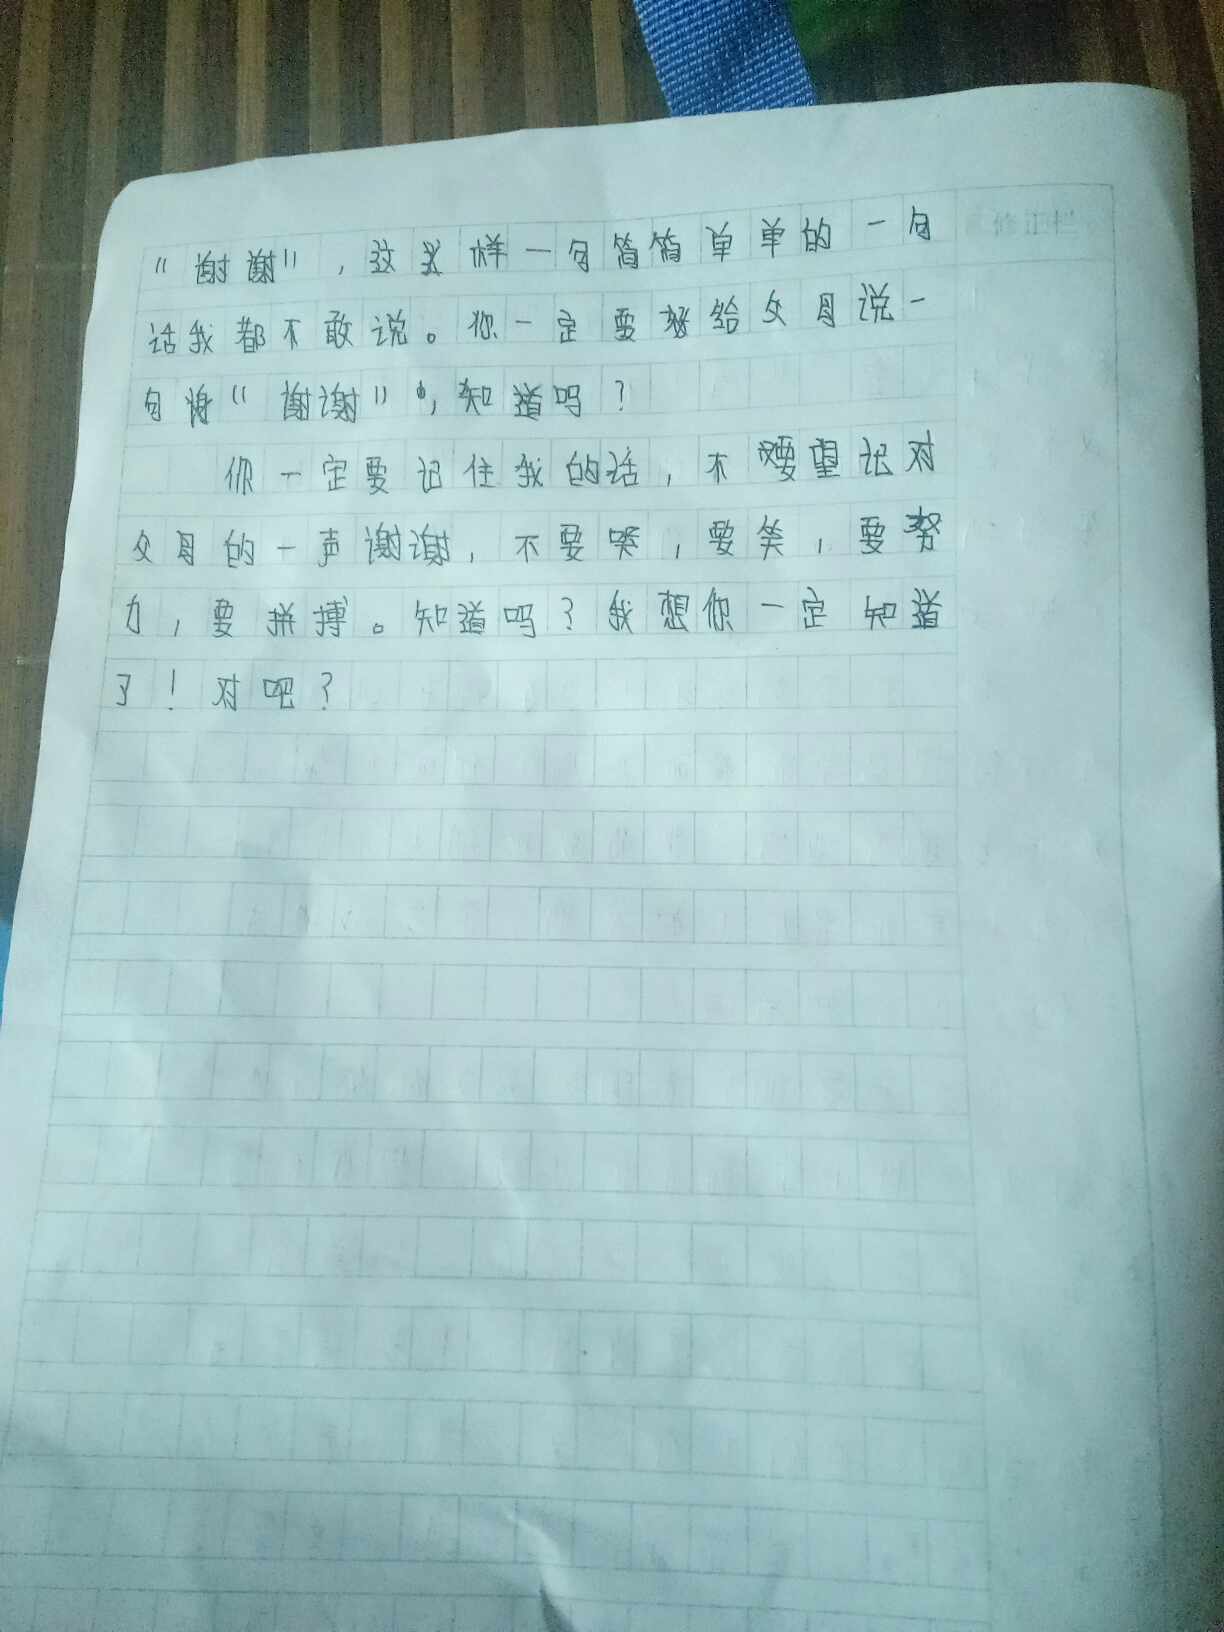 修正栏
“谢谢”，这样一句简简单单的一句
话我都不敢说。你一定要给父母说一
句“谢谢”，知道吗？
你一定要记住我的话，不要望记对
父母的一声谢谢，不要哭，要笑，要努
力，要拼搏。知道吗？我想你一定知道
了！对吧？